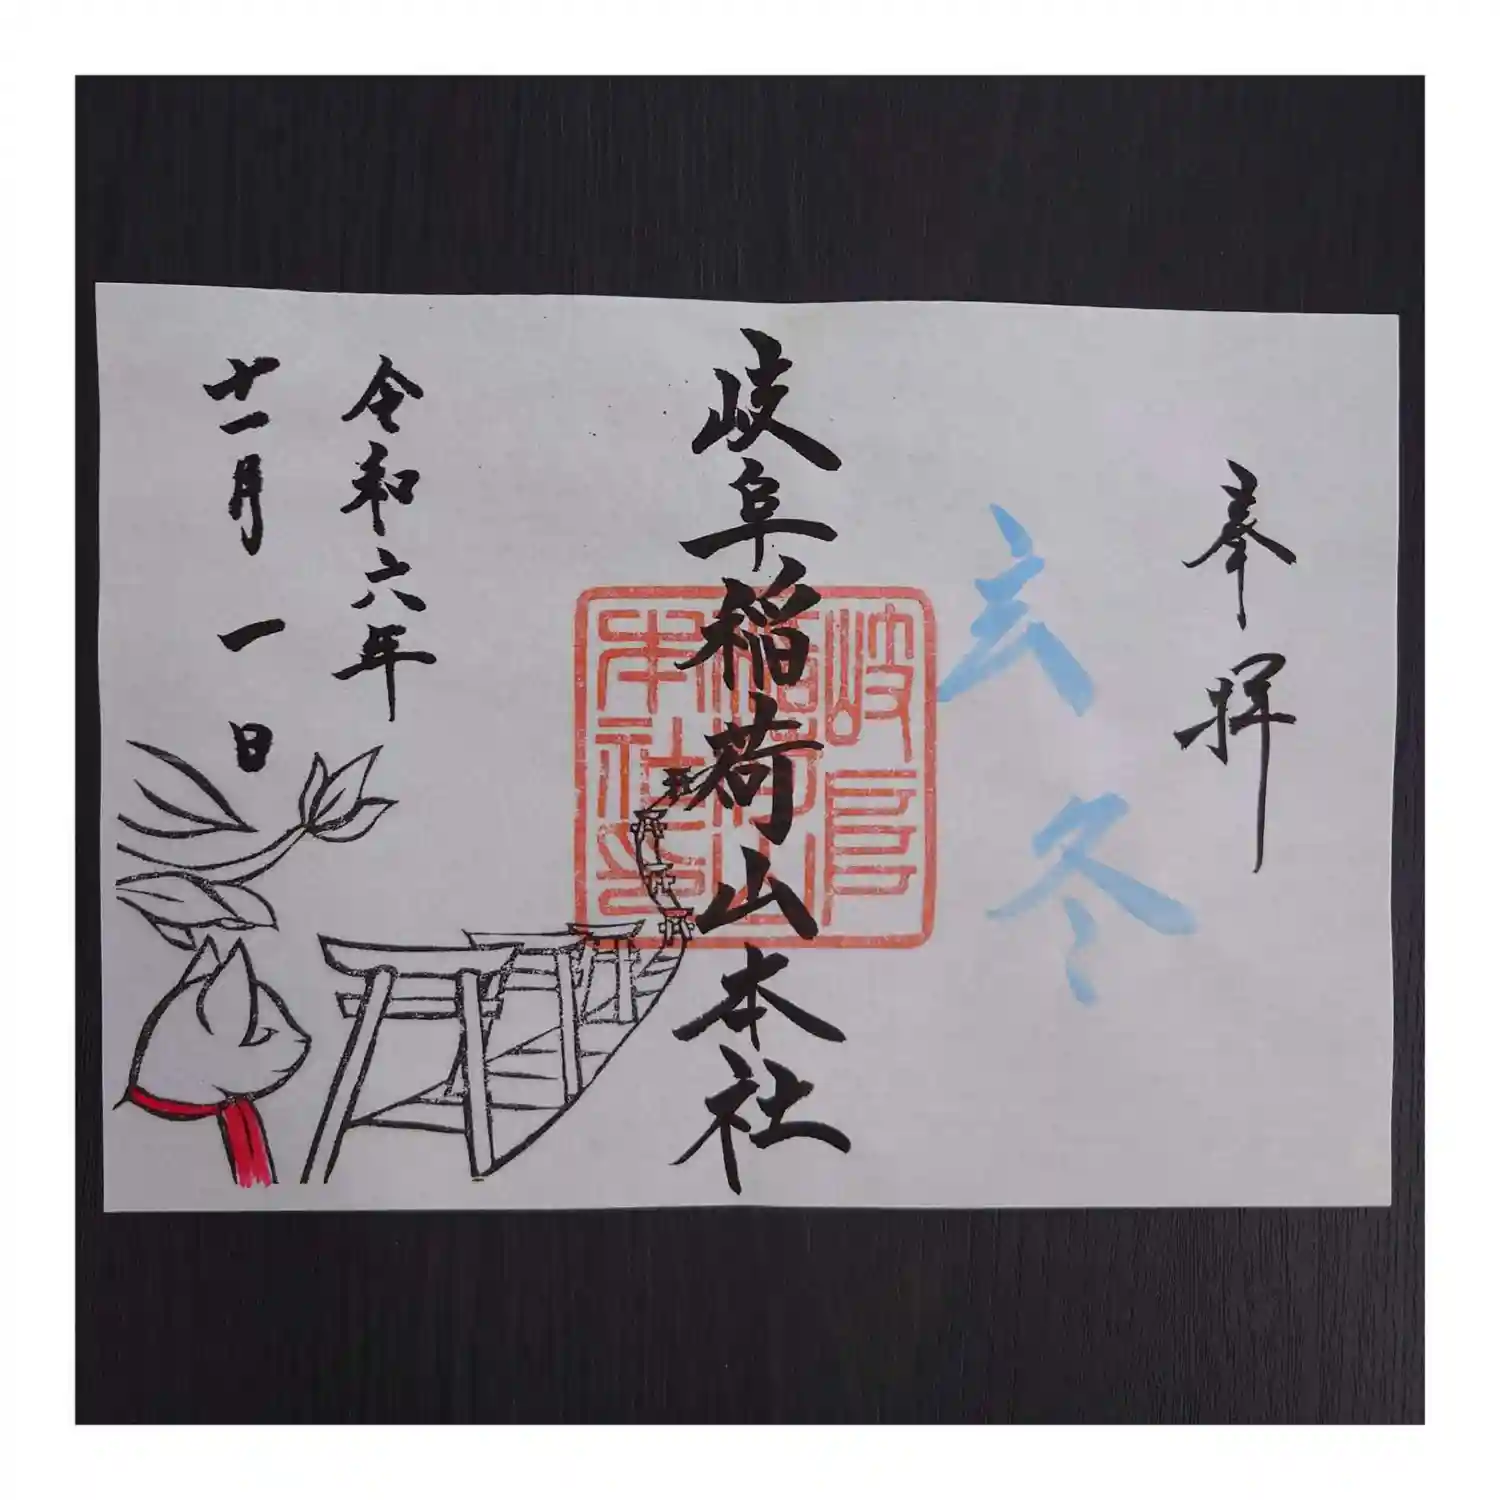 奉拝
玄冬
岐阜稲荷山本社
岐阜
稲荷山
本社印
令和六年
十一月一日